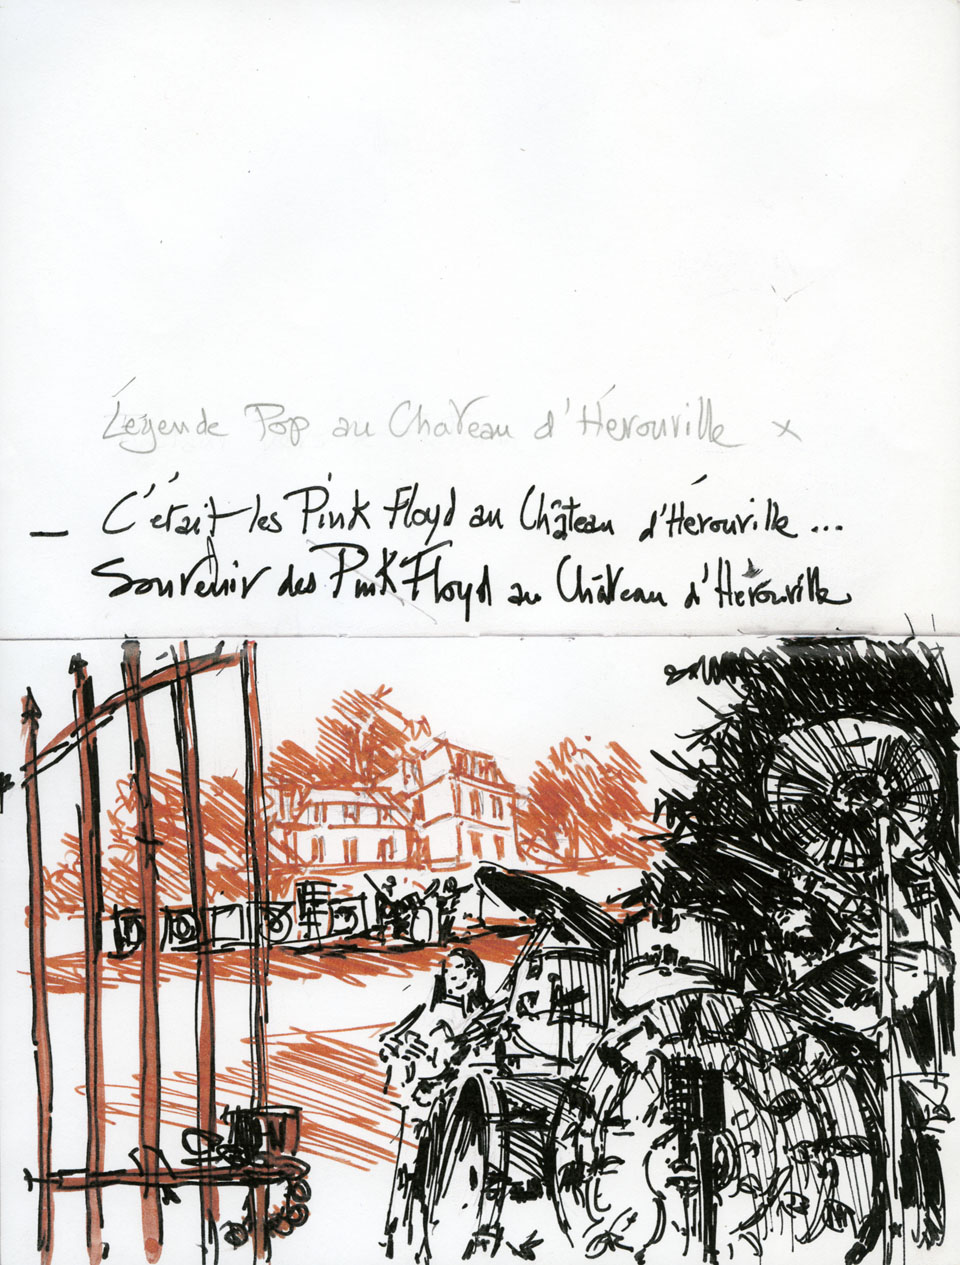 Légende Pop au Chateau d'Hérouville x
_ C'était les Pink Floyd au Château d'Hérouville ...
Souvenir des Pink Floyd au Château d'Hérouville